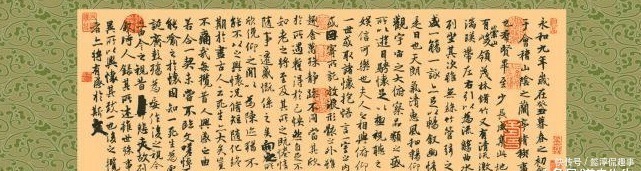 永和九年歲在癸丑暮春之初會
于會稽山陰之蘭亭脩稧事
也群賢畢至少長咸集此地
有崇山峻領茂林脩竹又有清流激
湍暎帶左右引以為流觴曲水
列坐其次雖無絲竹管弦之
盛一觴一詠亦足以暢敘幽情
是日也天朗氣清惠風和暢仰
觀宇宙之大俯察品類之盛
所以遊目騁懷足以極視聽之
娛信可樂也夫人之相與俯仰
一世或取諸懷抱悟言一室之內
或因寄所託放浪形骸之外雖
趣舍萬殊靜躁不同當其欣
於所遇蹔得於己怏然自足不
知老之將至及其所之既惓情
隨事遷感慨係之矣向之所
欣俛仰之間以為陳迹猶不
能不以之興懷況脩短隨化終
期於盡古人云死生亦大矣豈
不痛哉每攬昔人興感之由
若合一契未嘗不臨文嗟悼不
能喻之於懷固知一死生為虛
誕齊彭殤為妄作後之視今
亦由今之視昔悲夫故列
敘時人錄其所述雖世殊事
異所以興懷其致一也後之攬
者亦將有感於斯文
快传号/懿淳侃趣事